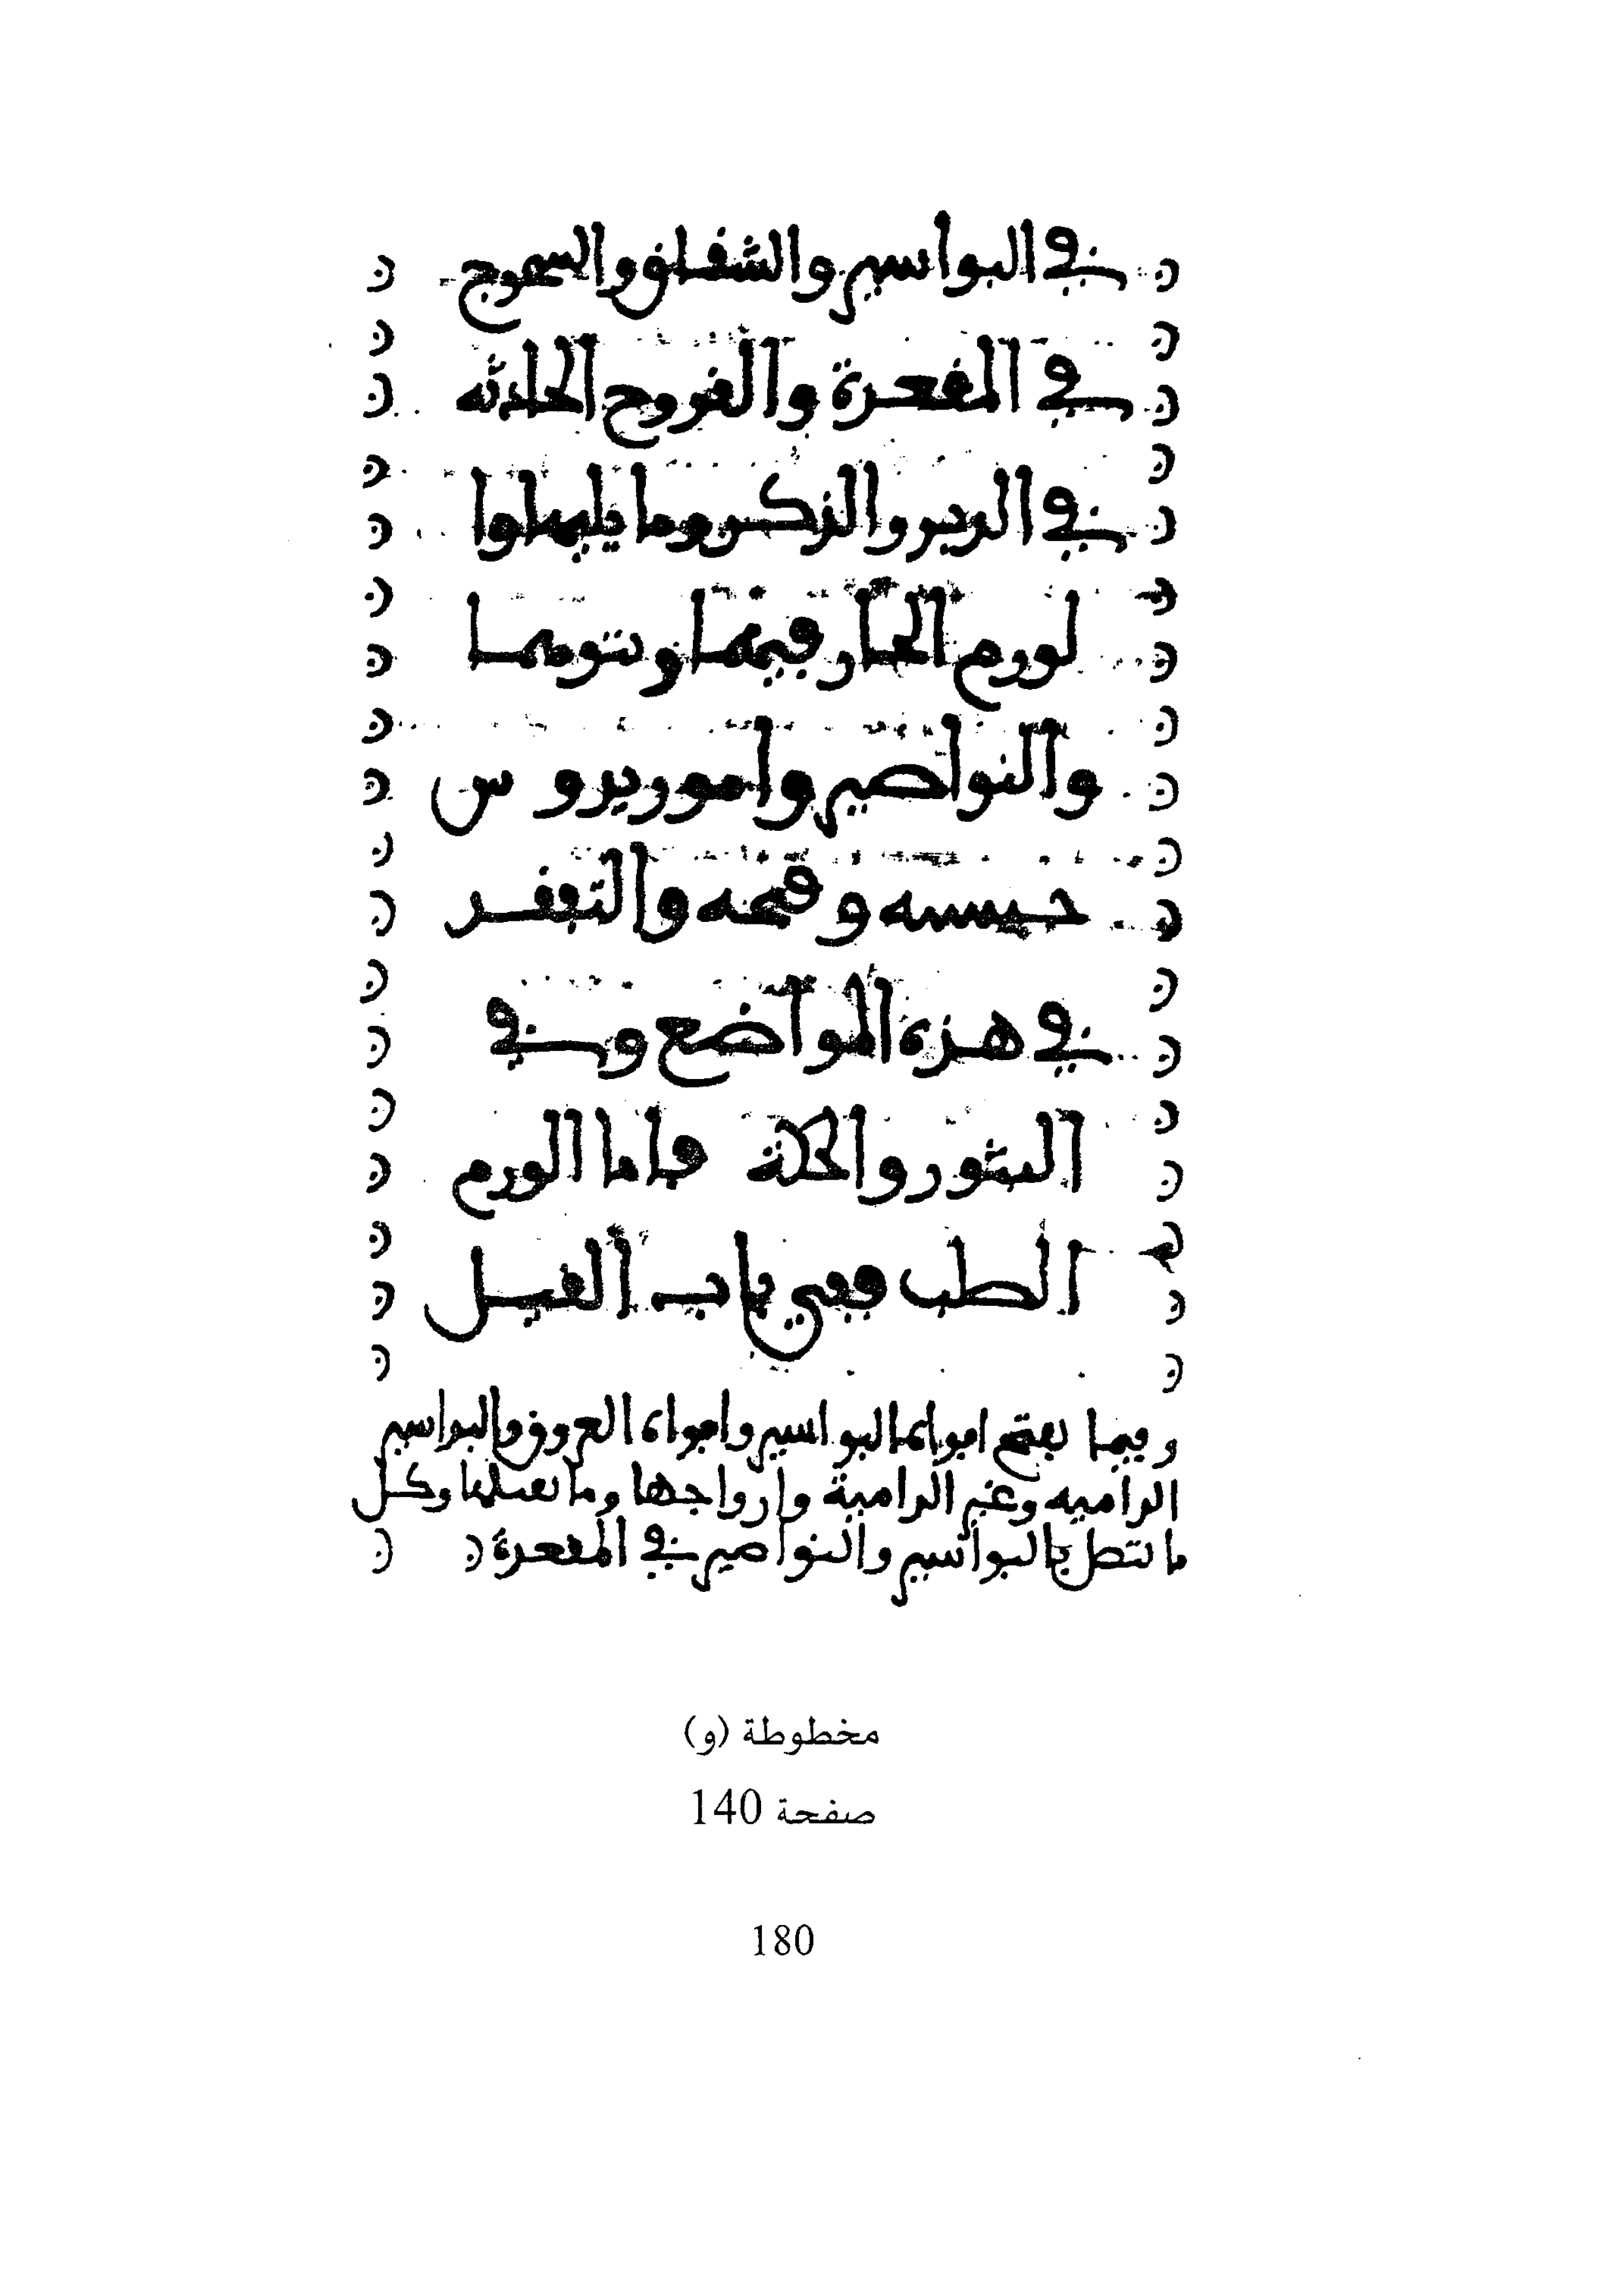 في البواسير والشقاق والسحوج
في المقعدة والقروح الحادثه
في الدبر والذكر وما يليهما وا
لورم الحار فيهما ونتومهما
والنواصير وامور يدرو س
حبسه وفتحه والتعقد
في هذه المواضع وفي
البثور والحكة فاما الورم
الصلب ففي باب القيل
وفيما يفتح افواه البواسير وافواه العروق والبواسير
الدامیه وغير الدامية وارواحها وما يعللها وكل
ما يتصل بالبواسير والنواصير في المقعدة
مخطوطة (و)
صفحة 140
180